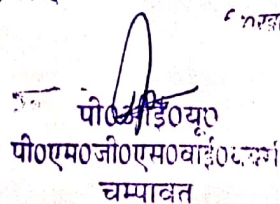 पी०आई०यू०
पी०एम०जी०एस०वाई०
चम्पावत